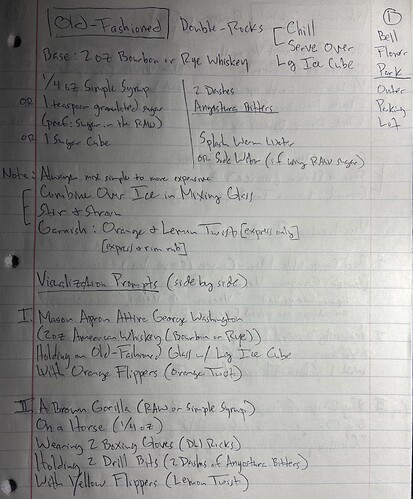 Old-Fashioned Double-Rocks [Chill
Serve Over
Lg Ice Cube
Base: 2 oz Bourbon or Rye Whiskey
1/4 oz Simple Syrup
OR 1 teaspoon granulated sugar
(pref: Sugar in the RAW)
OR 1 Sugar Cube
2 Dashes
Angostura Bitters
Splash Warm Water
OR Soda Water (if using RAW sugar)
Note: Always mix simple to more expensive
Combine Over Ice in Mixing Glass
Stir & Strain
Garnish: Orange & Lemon Twist [express only]
[express & rim rub]
Visualization Prompts (side by side)
I. Mason Apron Attire George Washington
(2oz American Whiskey (Bourbon or Rye))
Holding an Old-Fashioned Glass w/ Lg Ice Cube
With Orange Flippers (Orange Twist)
II. A Brown Gorilla (RAW or Simple Syrup)
On a Horse (1/4 oz)
Wearing 2 Boxing Gloves (Dbl Rocks)
Holding 2 Drill Bits (2 Dashes of Angostura Bitters)
With Yellow Flippers (Lemon Twist)
①
Bell
Flower
Park
Outer
Parking
Lot